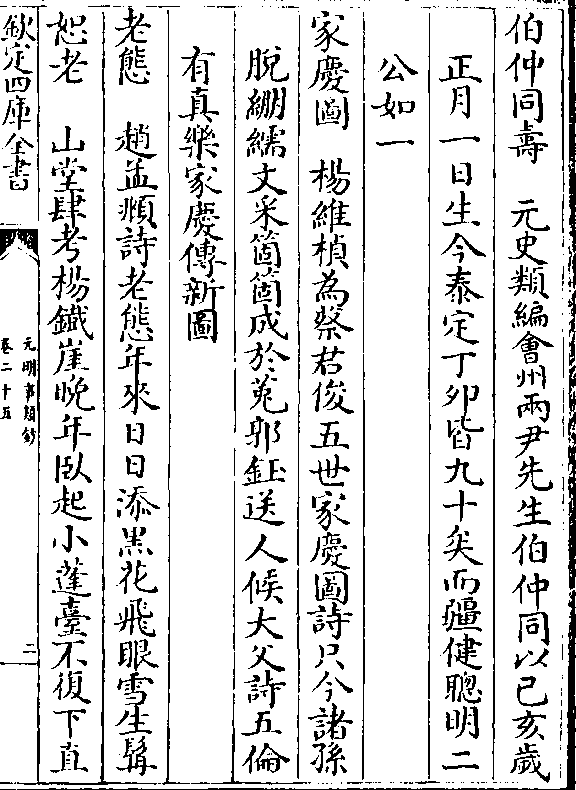 伯仲同壽　元史類編會州兩尹先生伯仲同以己亥歲
正月一日生今泰定丁卯皆九十矣而疆健聰明二
公如一
家慶圖　楊維楨為蔡君俊五世家慶圖詩只今諸孫
脫綳繻文采箇箇成於菟郭鈺送人候大父詩五倫
有真樂家慶傳新圖
老態　趙孟頫詩老態年來日日添黒花飛眼雪生髯
恕老　山堂肆考楊鐡崖晚年臥起小蓬臺不復下直
欽定四庫全書
元明事類鈔
卷二十五
二